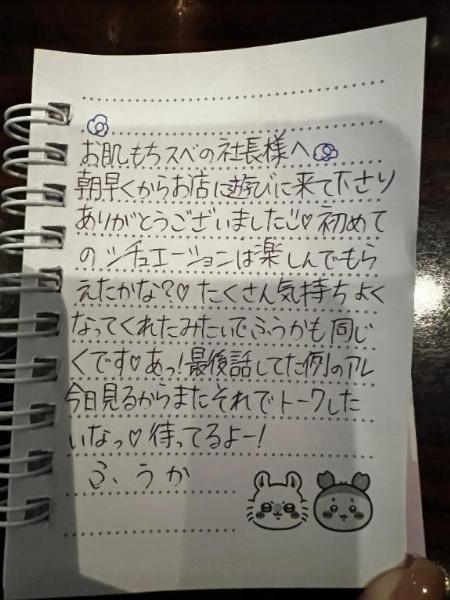 お肌もちスベの社長様へ
朝早くからお店に遊びに来て下さり
ありがとうございました♡初めて
のシチュエーションは楽しんでもら
えたかな?♡たくさん気持ちよく
なってくれたみたいでふうかも同じ
くです♡あっ!最後話してた例のアレ
今日見るからまたそれでトークした
いなっ♡待ってるよー!
ふうか